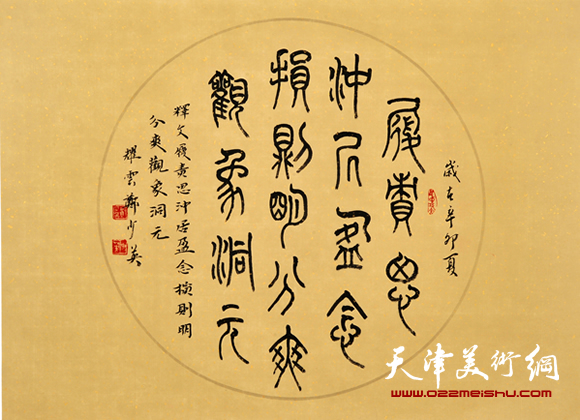 歲在辛卯夏
履貴思
沖居盈念
損則明分爽
觀象洞元
釋文履貴思沖居盈念損則明
分爽觀象洞元
耀雲鄭少英
天津美術網
www.022meishu.com